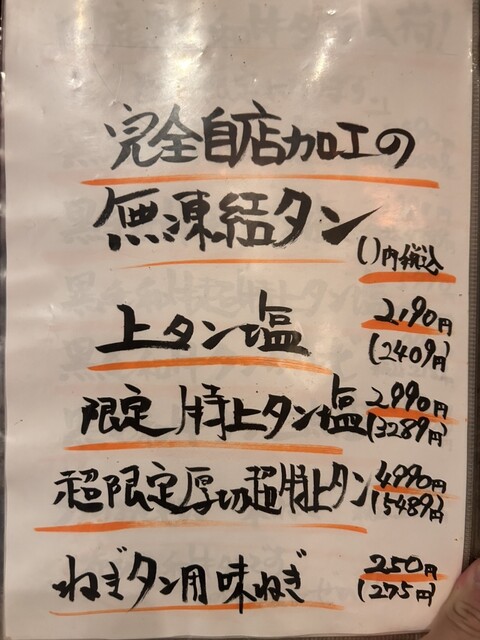 完全自店加工の
無凍結タン
()内税込
上タン塩 2,190円
(2409円)
限定特上タン塩 2990円
(3289円)
超限定厚切超特上タン 4990円
(5489円)
ねぎタン用味ねぎ 250円
(275円)